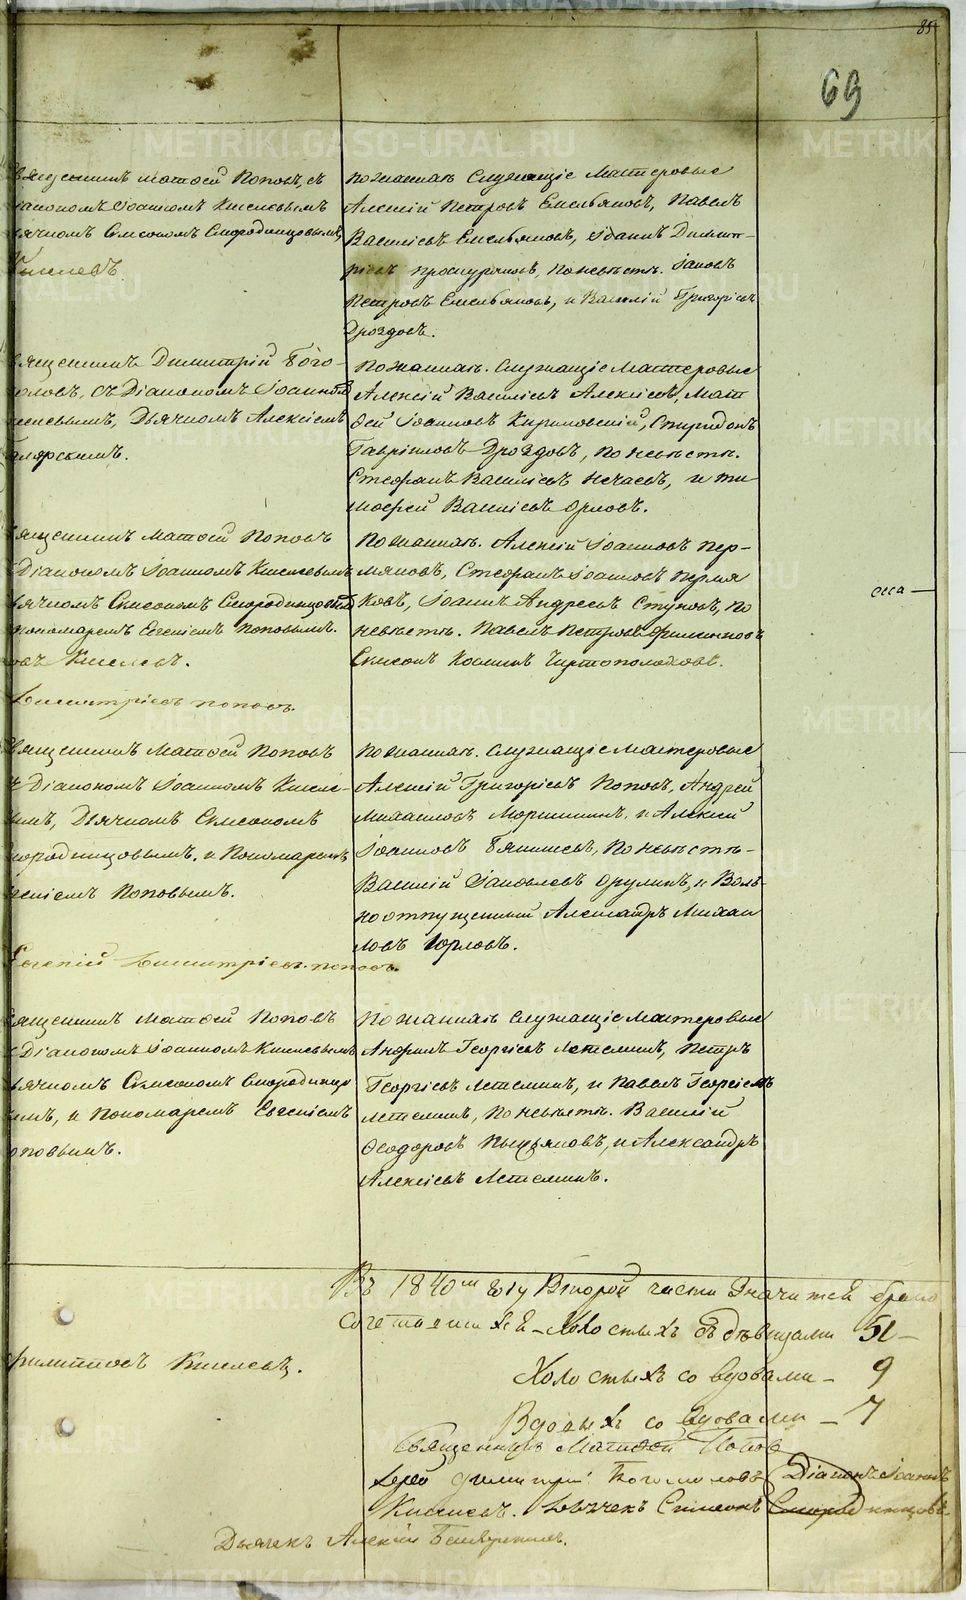 85
69
вященникъ Матѳей Поповъ, съ
іакономъ Іоанномъ Киселевымъ
ьячкомъ Симеономъ Смородинцовымъ,
Киселевъ
По женихѣ Служащіе Мастеровые
Алексій Петровъ Емельяновъ, Павелъ
Василіевъ Емельяновъ, Іоаннъ Димит-
ріевъ Проскуряковъ, По невѣстѣ. Іаковъ
Петровъ Емельяновъ, и Василій Григоріевъ
Дроздовъ.
вященникъ Димитрій Бого-
оловъ, съ Діакономъ Іоанномъ
иселевымъ, Дьячкомъ Алексіемъ
По женихѣ. Служащіе Мастеровые
Алексій Василіевъ Алексіевъ, Мат
ѳей Іоанновъ Кириловскій, Спиридонъ
Гавріиловъ Дроздовъ, По невѣстѣ.
Стефанъ Василіевъ Нечаевъ, и Ти
моѳей Василіевъ Орловъ.
вященникъ Матѳей Поповъ
Діакономъ Іоанномъ Киселевымъ
ьячкомъ Симеономъ Смородинцовымъ
ономаремъ Евгеніемъ Поповымъ.
овъ Киселевъ.
Димитріевъ Поповъ.
По женихѣ. Алексій Іоанновъ Пер-
мяковъ, Стефанъ Іоанновъ Пермя
ковъ, Іоаннъ Андреевъ Стуковъ, По
невѣстѣ. Павелъ Петровъ Филимоновъ
Симеонъ Козминъ Чертополоховъ.
вященникъ Матѳей Поповъ
Діакономъ Іоанномъ Киселе-
ымъ, Дьячкомъ Симеономъ
мородинцовымъ, и Пономаремъ
вгеніемъ Поповымъ.
Евгеній Димитріевъ Поповъ.
По женихѣ. Служащіе Мастеровые
Алексій Григоріевъ Поповъ, Андрей
Михаиловъ и Алексій
Іоанновъ По невѣстѣ-
Василій Іаковлевъ и Воль-
ноотпущенный Александръ Михаи
ловъ Орловъ.
вященникъ Матѳей Поповъ
Діакономъ Іоанномъ Киселевымъ
ьячкомъ Симеономъ Смородинцо
ымъ, и Пономаремъ Евгеніемъ
оповымъ.
По женихѣ Служащіе Мастеровые
Георгіевъ Летеминъ, Петръ
Георгіевъ Летеминъ, и Павелъ Георгіевъ
Летеминъ, По невѣстѣ. Василій
Ѳеодоровъ и Александръ
Алексіевъ Летеминъ.
Въ 1840мъ году Второй части значится брако
сочетавшихся - Холостыхъ съ дѣвицами 51 -
Холостыхъ со вдовами - 9
Вдовыхъ со вдовами - 7
Филиппов Киселевъ.
Священникъ Матѳей Попов
Іерей Димитрій Богомоловъ Діаконъ Іоаннъ
Киселевъ. Дьячекъ Симеонъ Смородинцовъ
Дьячекъ Алексій
METRIKI.GASO-URAL.RU